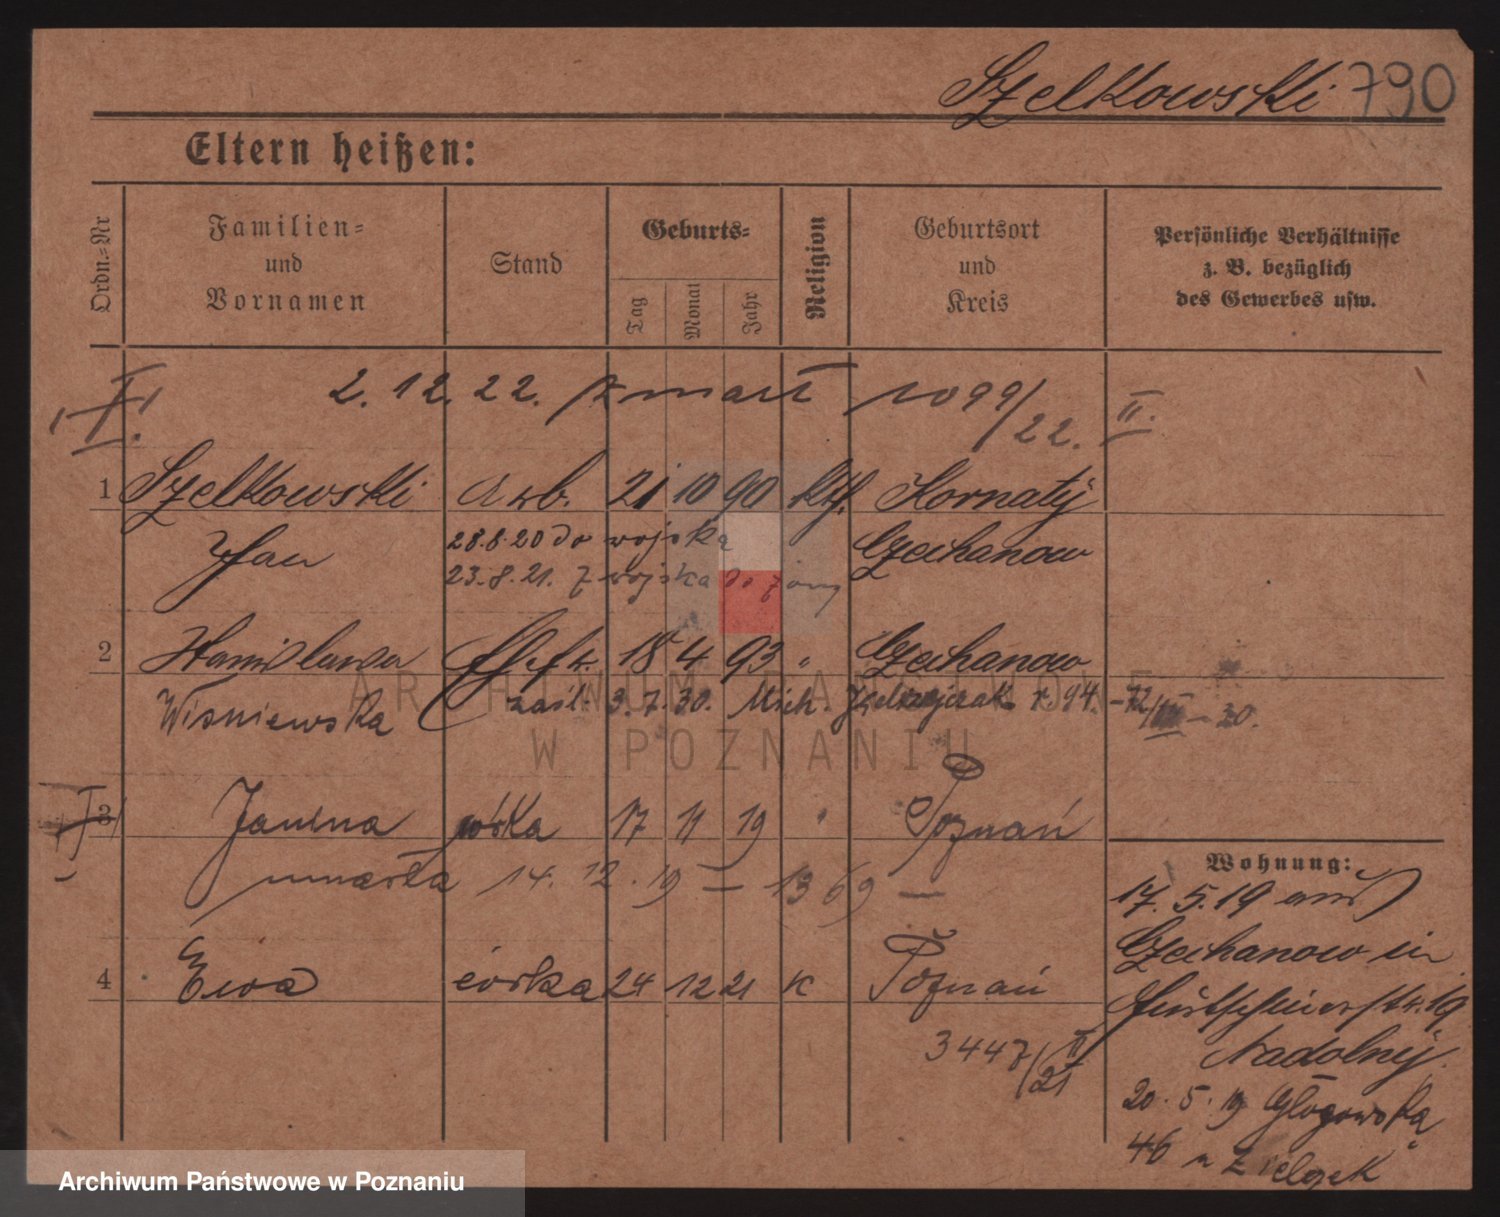 Szelkowski 790
Eltern heißen:
Ordn=Nr
Familien=
und
Vornamen
Stand
Geburts=
Tag
Monat
Jahr
Religion
Geburtsort
und
Kreis
Persönliche Verhältnisse
z. B. bezüglich
des Gewerbes usw.
I.
2. 12. 22. zmarł 1099/22. II.
1 Szelkowski Arb. 21 10 90 kth. Kornaty
Jan 28.8.20 do wojska Czechanow
23.8.21. z wojska do żony
2 Stanislawa Ehefr. 18 4 93 " Czechanow
Wiśniewska zaśl. 3.7.30. Mich. r. 94. -72/III - 30.
3 Janina córka 17 11 19 " Poznań
umarła 14. 12. 19 — 1369 —
4 Ewa córka 24 12 21 k Poznań
3447/21 II
Wohnung:
17. 5. 19 aus
Czechanow in
19
Nadolny
20. 5. 19 Głogowska
46
ARCHIWUM PAŃSTWOWE
W POZNANIU
Archiwum Państwowe w Poznaniu